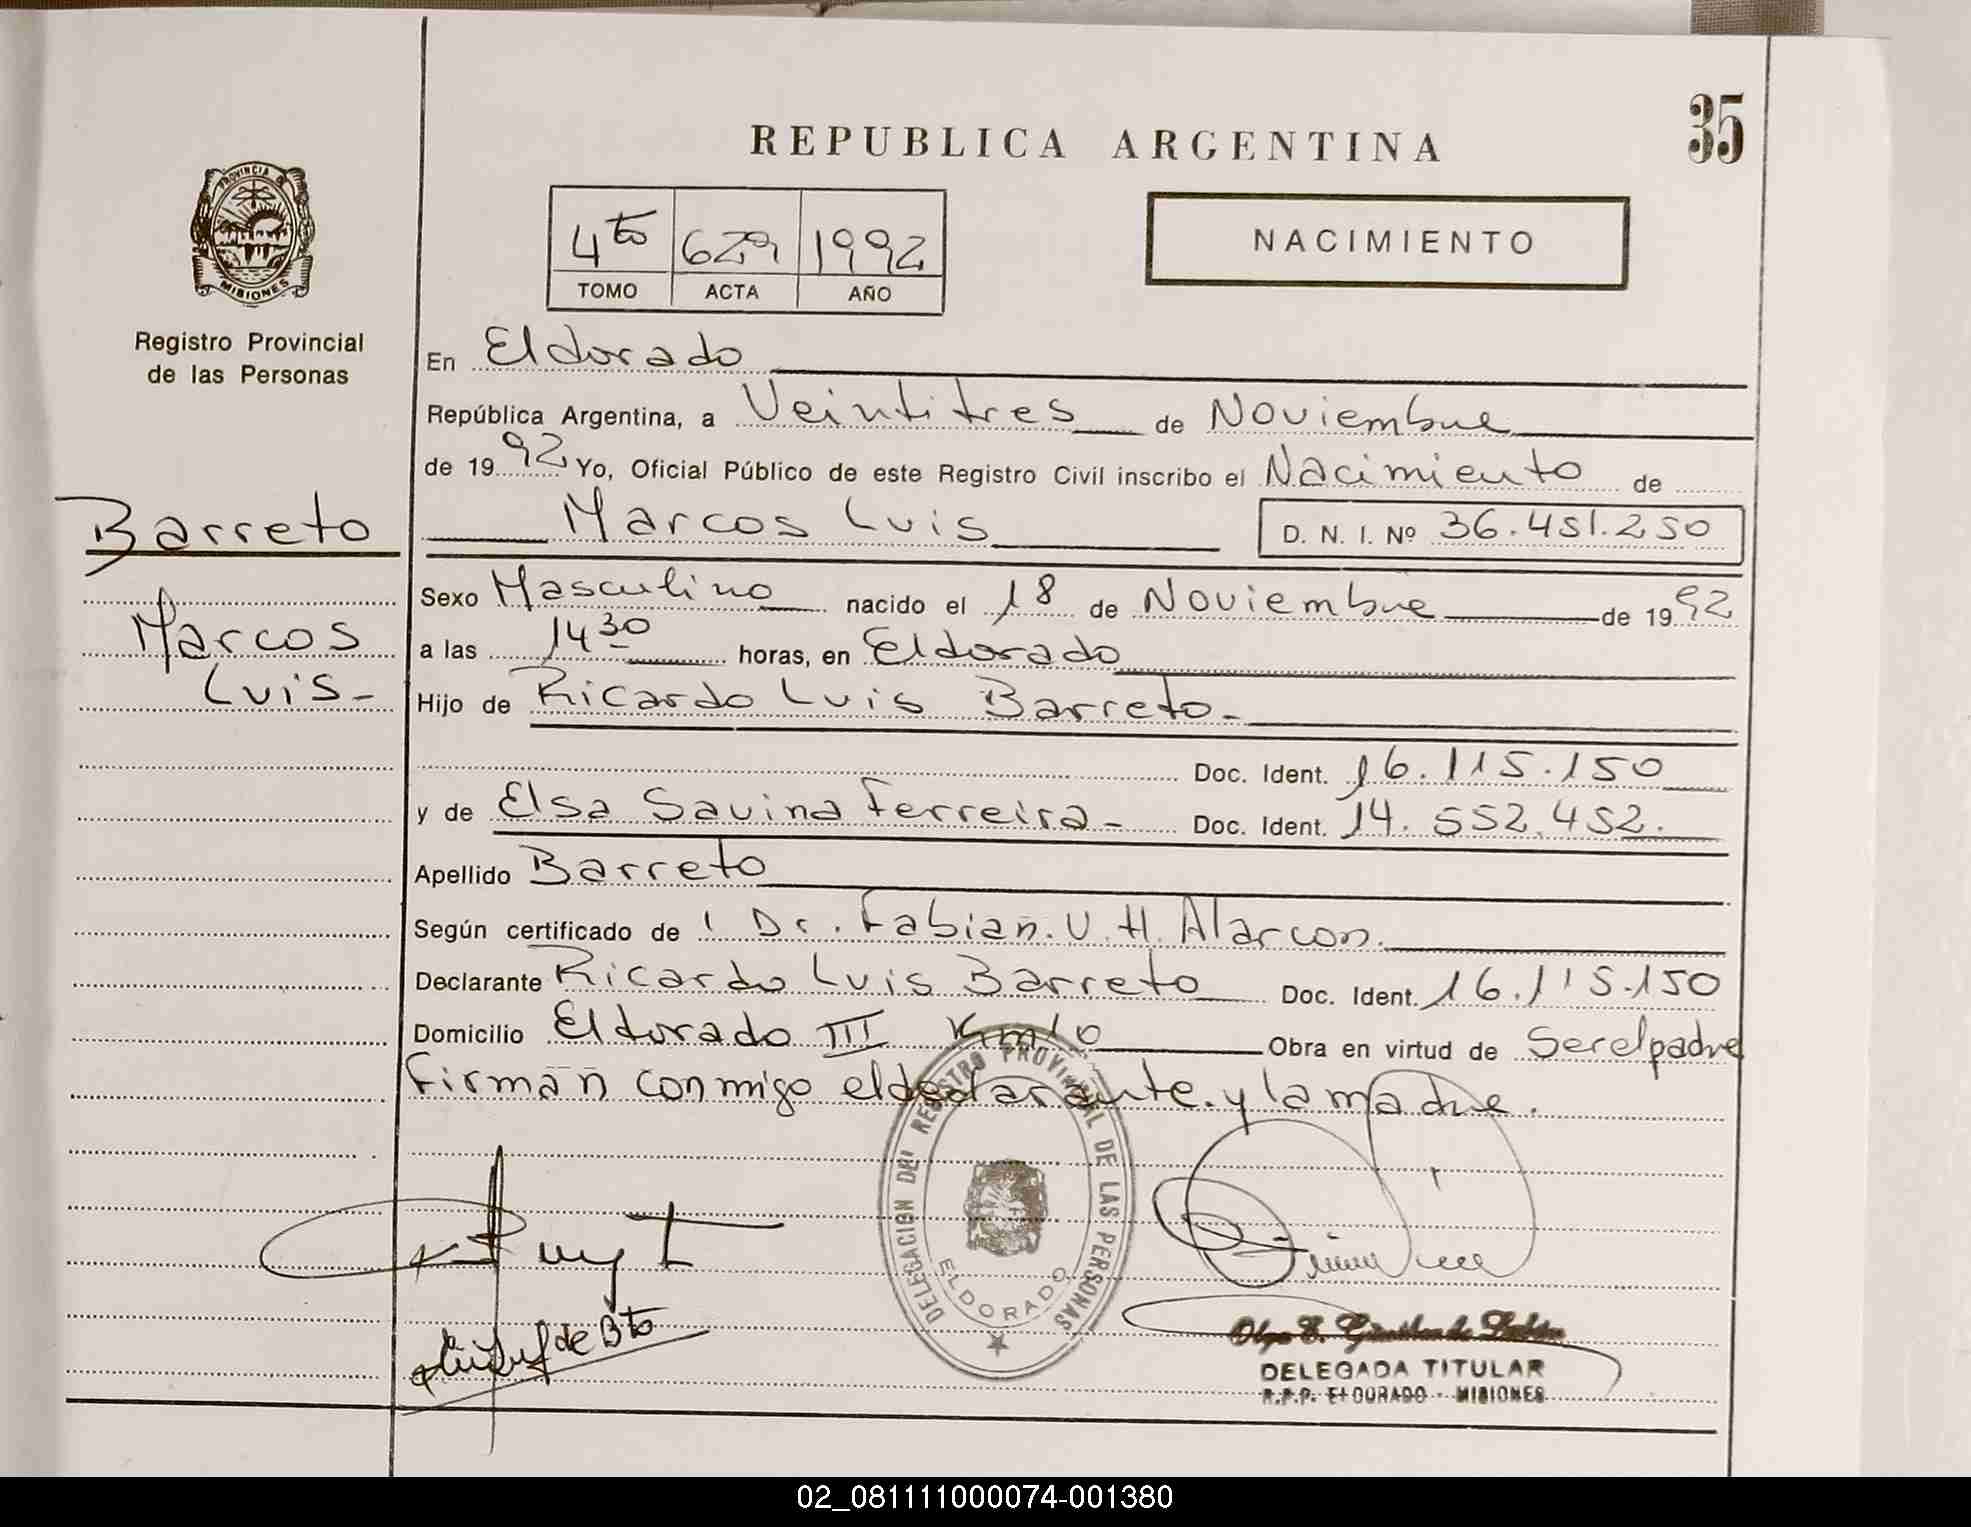 REPUBLICA ARGENTINA
35
PROVINCIA DE
MISIONES
Registro Provincial
de las Personas
4to 629 1992
TOMO ACTA AÑO
NACIMIENTO
En Eldorado
República Argentina, a Veintitres de Noviembre
de 1992 Yo, Oficial Público de este Registro Civil inscribo el Nacimiento de
Marcos Luis D. N. I. Nº 36.451.250
Barreto
Marcos
Luis-
Sexo Masculino nacido el 18 de Noviembre de 1992
a las 14 30 horas, en Eldorado
Hijo de Ricardo Luis Barreto-
Doc. Ident. 16.115.150
y de Elsa Savina Ferreira- Doc. Ident. 14.552.452.
Apellido Barreto
Según certificado de Dr. Fabian.V.H.Alarcon.
Declarante Ricardo Luis Barreto Doc. Ident. 16.115.150
Domicilio Eldorado III Km10 Obra en virtud de Ser el padre
Firman conmigo el declarante y la madre.
DELEGACION DEL REGISTRO PROVINCIAL DE LAS PERSONAS
ELDORADO
de Bto
Olga E.
DELEGADA TITULAR
R.P.P. ELDORADO - MISIONES
02_081111000074-001380